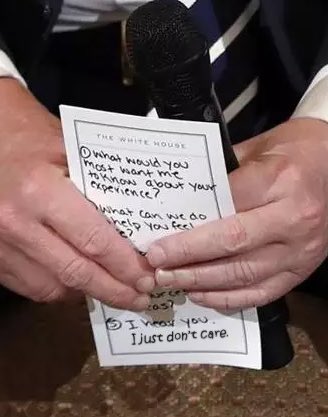 THE WHITE HOUSE
① What would you
most want me
to know about your
experience?
What can we do
help you feel
e?
as?
⑤ I hear you.
I just don't care.